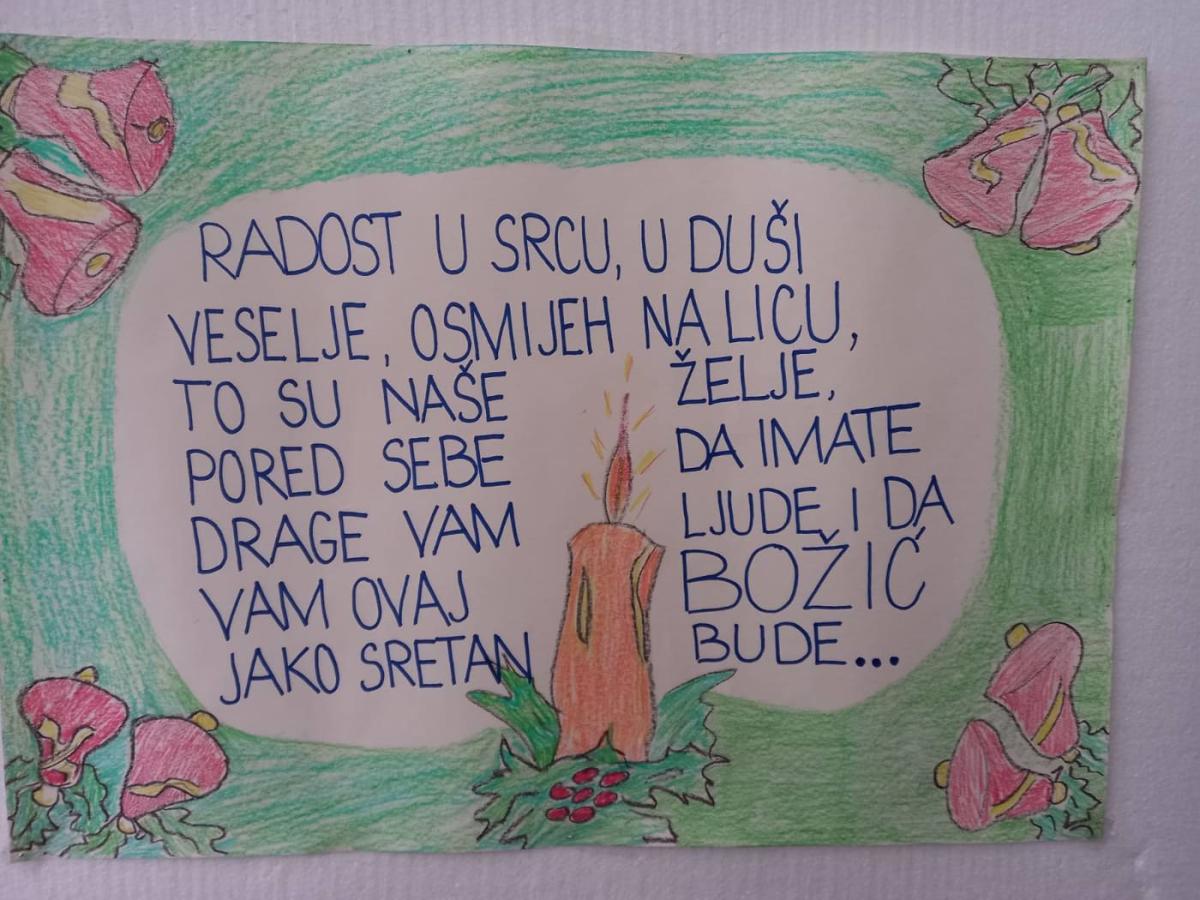 RADOST U SRCU, U DUŠI
VESELJE, OSMIJEH NA LICU,
TO SU NAŠE ŽELJE,
PORED SEBE DA IMATE
DRAGE VAM LJUDE I DA
VAM OVAJ BOŽIĆ
JAKO SRETAN BUDE...